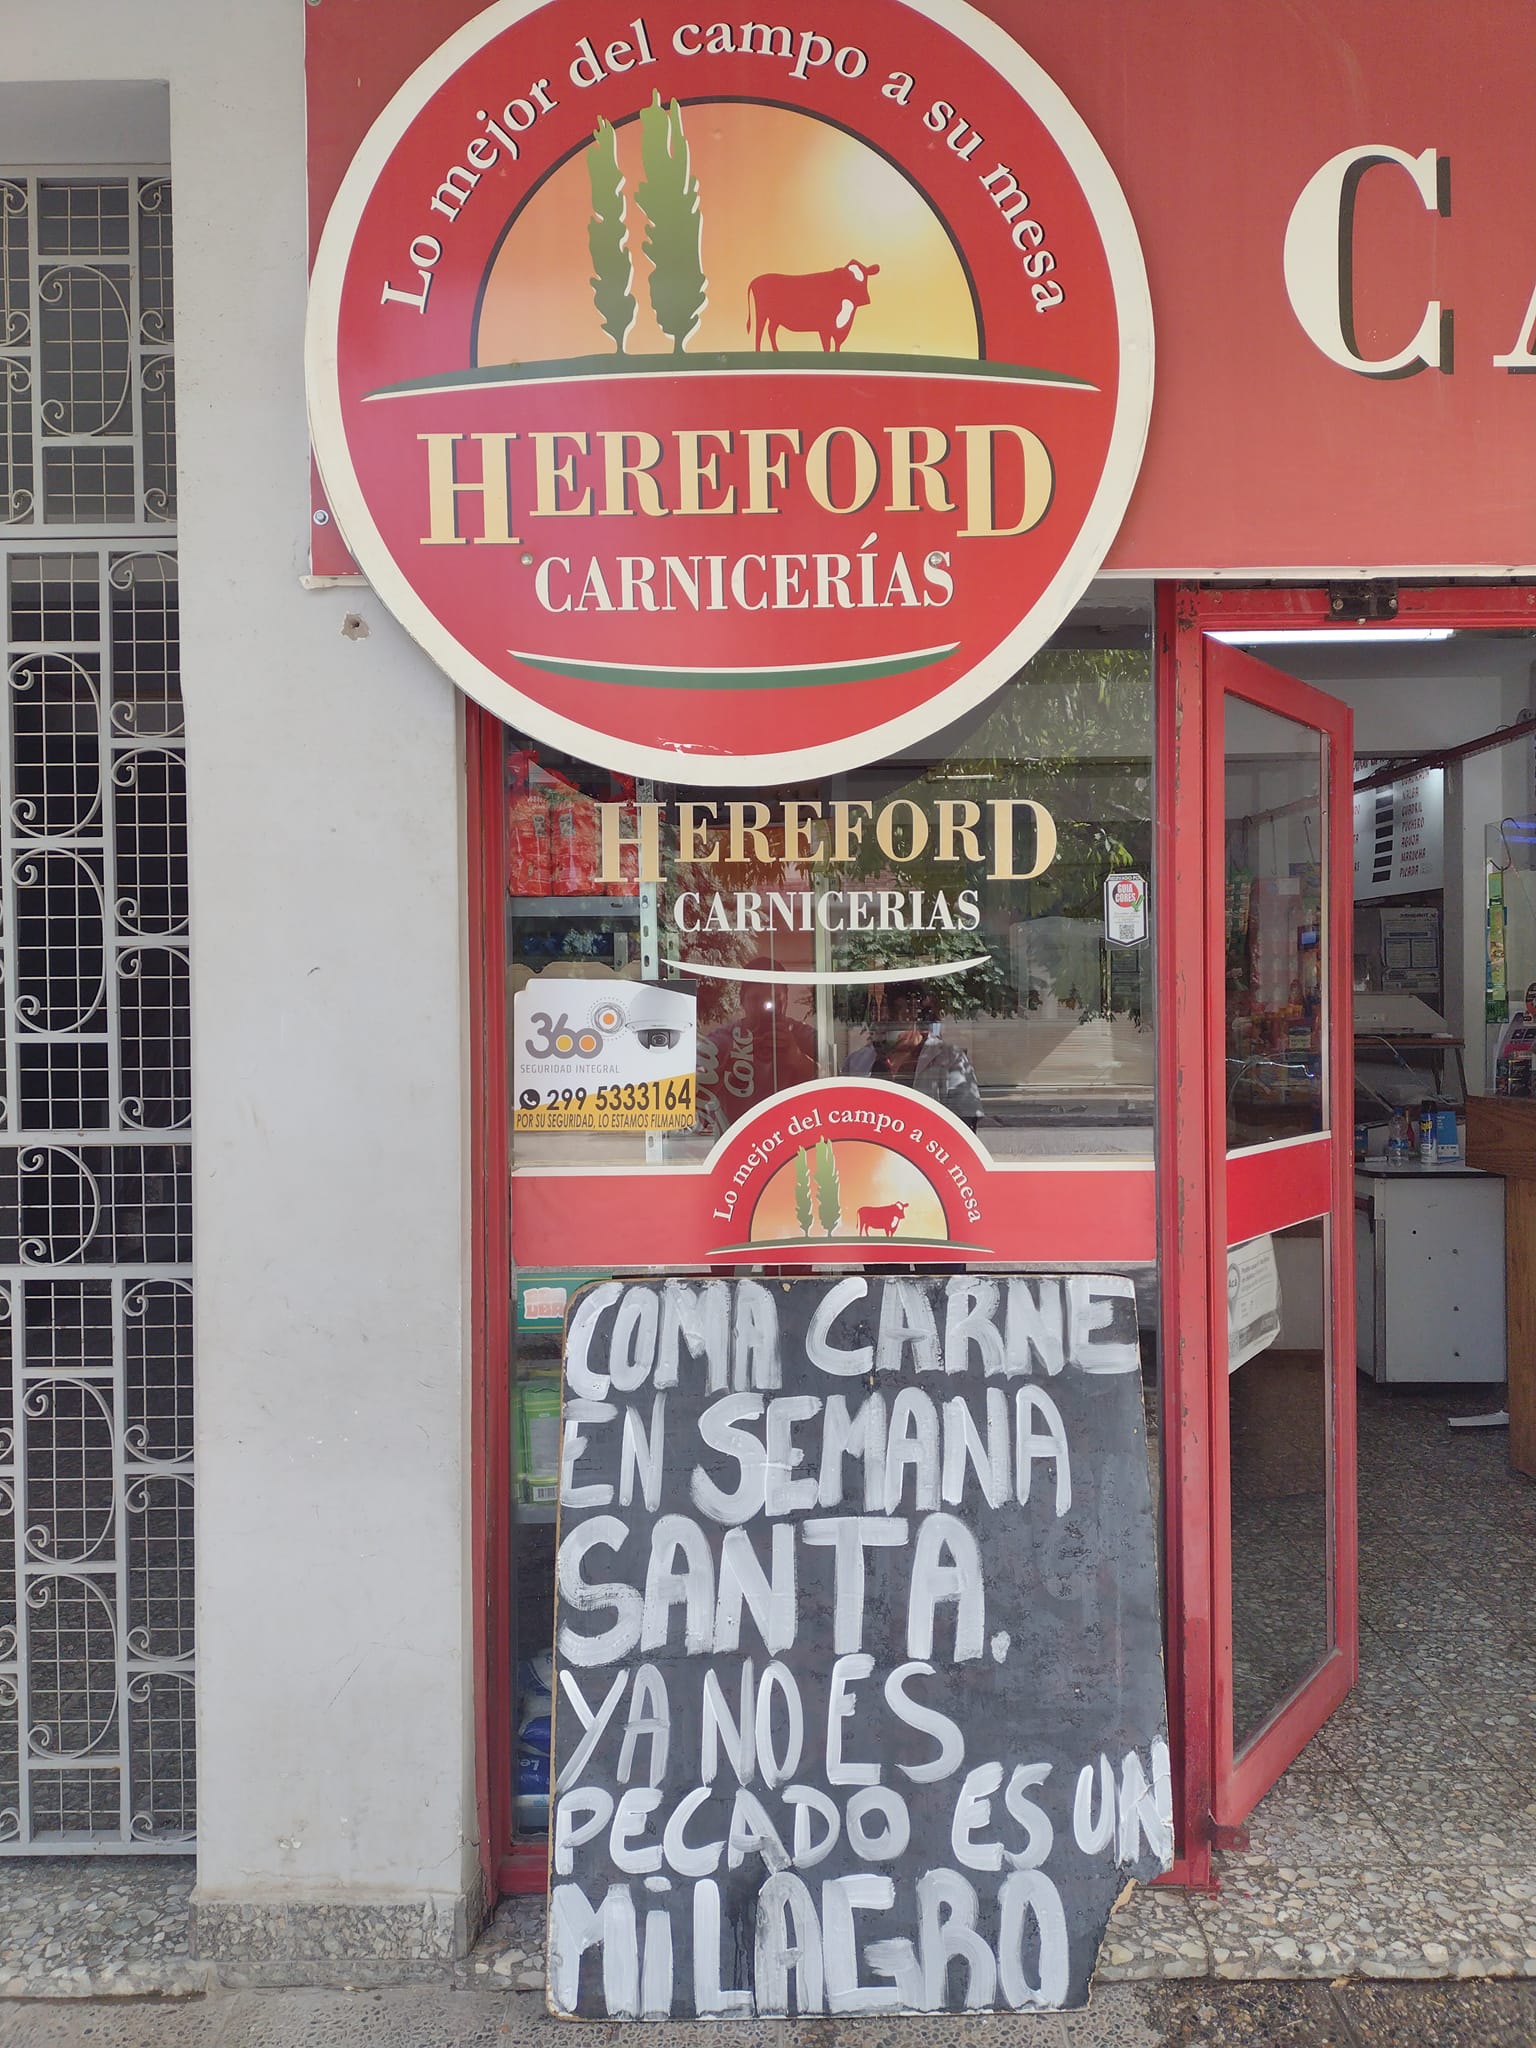 Lo mejor del campo a su mesa
HEREFORD
CARNICERÍAS
CA
HEREFORD
CARNICERIAS
NALGA
CUADRIL
PUCHERO
AGUJA
MARUCHA
PICADA
GUIA
CORES
360
SEGURIDAD INTEGRAL
299 5333164
POR SU SEGURIDAD, LO ESTAMOS FILMANDO
Coke
Lo mejor del campo a su mesa
COMA CARNE
EN SEMANA
SANTA.
YA NO ES
PECADO ES UN
MiLAGRO